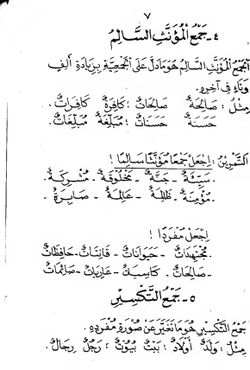 ٧
٤ - جَمْعُ الْمُؤَنَّثِ السَّالِمُ
اَلْجَمْعُ الْمُؤَنَّثُ السَّالِمُ هُوَ مَا دَلَّ عَلَى الْجَمْعِيَّةِ بِزِيَادَةِ أَلِفٍ
وَتَاءٍ فِي آخِرِهِ
مِثْلُ : صَالِحَةٌ صَالِحَاتٌ : كَافِرَةٌ كَافِرَاتٌ :
حَسَنَةٌ حَسَنَاتٌ : مُبَلِّغَةٌ مُبَلِّغَاتٌ :
اَلتَّمْرِيْنُ : اِجْعَلْ جَمْعًا مُؤَنَّثًا سَالِمًا !
سَيِّئَةٌ - جَنَّةٌ - مَخْلُوْقَةٌ - مُشْرِكَةٌ -
مُؤْمِنَةٌ - ظَالِمَةٌ - عَالِمَةٌ - صَابِرَةٌ -
اِجْعَلْ مُفْرَدًا !
مُجْتَهِدَاتٌ - حَيَوَانَاتٌ - قَانِتَاتٌ - حَافِظَاتٌ
- صَالِحَاتٌ - كَاسِيَةٌ - عَارِيَاتٌ - صَائِمَاتٌ
٥ - جَمْعُ التَّكْسِيْرِ
جَمْعُ التَّكْسِيْرِ هُوَ مَا تَغَيَّرَ عَنْ صُوْرَةِ مُفْرَدِهِ .
مِثْلُ : وَلَدٌ أَوْلَادٌ : بَيْتٌ بُيُوْتٌ : رَجُلٌ رِجَالٌ :